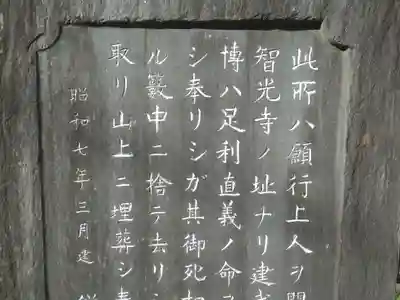 此所ハ願行上人ヲ開
智光寺ノ址ナリ建武
博ハ足利直義ノ命ヲ
シ奉リシガ其御死
ル籔中ニ捨テ去リシ
取リ山上ニ埋葬シ奉
昭和七年三月建